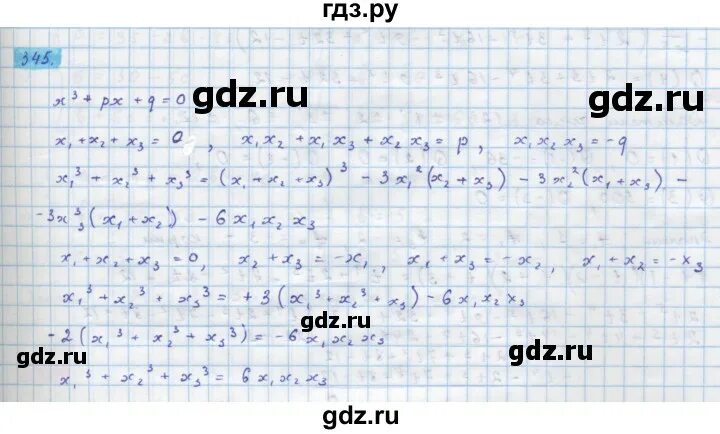 гдз.ру
345.
x³ + px + q = 0
gdz.ru
gdz.ru
x₁ + x₂ + x₃ = 0, x₁x₂ + x₁x₃ + x₂x₃ = p, x₁x₂x₃ = -q
x₁³ + x₂³ + x₃³ = (x₁ + x₂ + x₃)³ - 3x₁²(x₂ + x₃) - 3x₂²(x₁ + x₃) -
-3x₃³(x₁ + x₂) - 6x₁x₂x₃
x₁ + x₂ + x₃ = 0, x₂ + x₃ = -x₁, x₁ + x₃ = -x₂, x₁ + x₂ = -x₃
x₁³ + x₂³ + x₃³ = +3(x₁³ + x₂³ + x₃) - 6x₁x₂x₃
gdz.ru
-2(x₁³ + x₂³ + x₃³) = -6x₁x₂x₃
gdz.ru
gdz.ru
x₁³ + x₂³ + x₃³ = 6x₁x₂x₃
gdz.ru